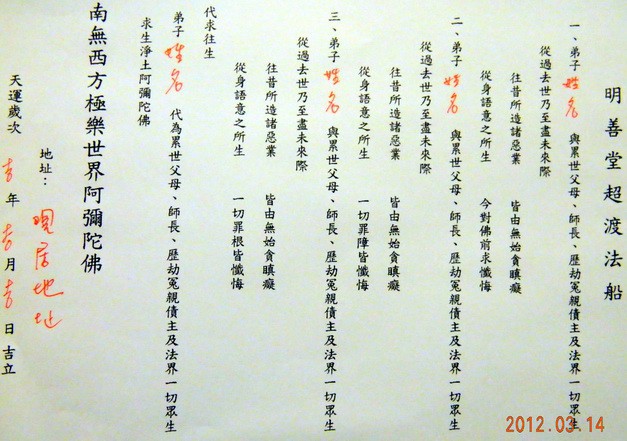 明善堂超渡法船
一、弟子 姓名 與累世父母、師長、歷劫冤親債主及法界一切眾生
從過去世乃至盡未來際
往昔所造諸惡業 皆由無始貪瞋癡
從身語意之所生 今對佛前求懺悔
二、弟子 姓名 與累世父母、師長、歷劫冤親債主及法界一切眾生
從過去世乃至盡未來際
往昔所造諸惡業 皆由無始貪瞋癡
從身語意之所生 一切罪障皆懺悔
三、弟子 姓名 與累世父母、師長、歷劫冤親債主及法界一切眾生
從過去世乃至盡未來際
往昔所造諸惡業 皆由無始貪瞋癡
從身語意之所生 一切罪根皆懺悔
代求往生
弟子 姓名 代為累世父母、師長、歷劫冤親債主及法界一切眾生
求生淨土阿彌陀佛
南無西方極樂世界阿彌陀佛
地址：現居地址
天運歲次 吉年吉月吉日吉立
2012.03.14